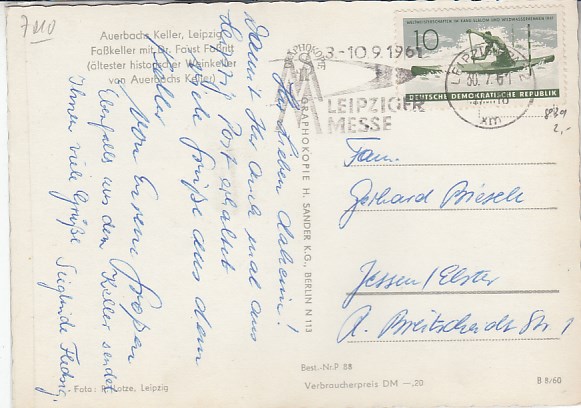 7110
Auerbachs Keller, Leipzig
Faßkeller mit Dr. Faust Faßritt
(ältester historischer Weinkeller
von Auerbachs Keller)
Ihr Lieben daheim!
Damit Ihr auch mal aus
Leipzig Post erhaltet
viele Grüße aus dem
Keller
Von Eurem Großen
Ebenfalls aus dem Keller sendet
Ihnen viele Grüße Sieglinde
Foto: R. Lotze, Leipzig
GRAPHOKOPIE
GRAPHOKOPIE H. SANDER K.G., BERLIN N 113
3-10.9.1961
LEIPZIGER
MESSE
LEIPZIG
30.7.61
xm
10
DEUTSCHE DEMOKRATISCHE REPUBLIK
839
2,-
Fam.
Gerhard Biesele
Jessen/Elster
R. Breitscheidt Str. 1
Best.-Nr. P 88
Verbraucherpreis DM —,20
B 8/60